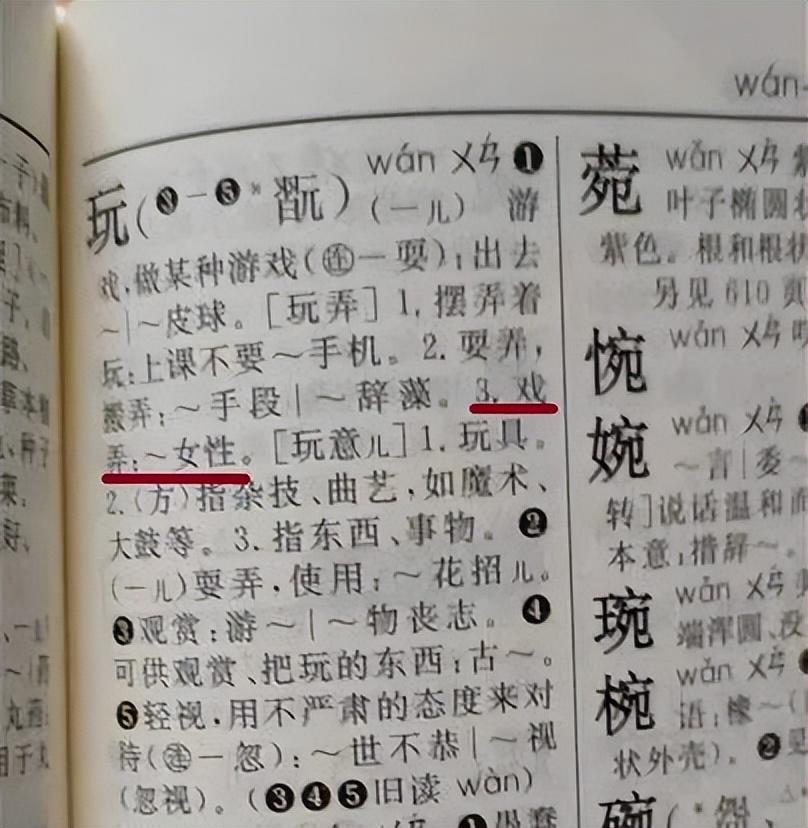 wán-
玩(❸-❺*翫) wán ㄨㄢˊ ❶
(一儿) 游
戏,做某种游戏(㊣一耍):出去
~|~皮球。[玩弄]1.摆弄着
玩:上课不要~手机。2.耍弄,
搬弄:~手段|~辞藻。3.戏
弄:~女性。[玩意儿]1.玩具。
2.(方)指杂技、曲艺,如魔术、
大鼓等。3.指东西、事物。❷
(一儿)耍弄,使用:~花招儿。
❸观赏:游~|~物丧志。❹
可供观赏、把玩的东西:古~。
❺轻视,用不严肃的态度来对
待(㊣一忽):~世不恭|~视
(忽视)。(❸❹❺旧读 wàn)
菀 wǎn ㄨㄢˇ 紫
叶子椭圆状
紫色。根和根状
另见 610 页
惋 wǎn ㄨㄢˇ 叹
婉 wǎn ㄨㄢˇ
~言|委~
转]说话温和而
本意:措辞~。
琬 wǎn ㄨㄢˇ
端浑圆、没
椀 wǎn ㄨㄢˇ
语:橡~(
状外壳)。❷见
碗